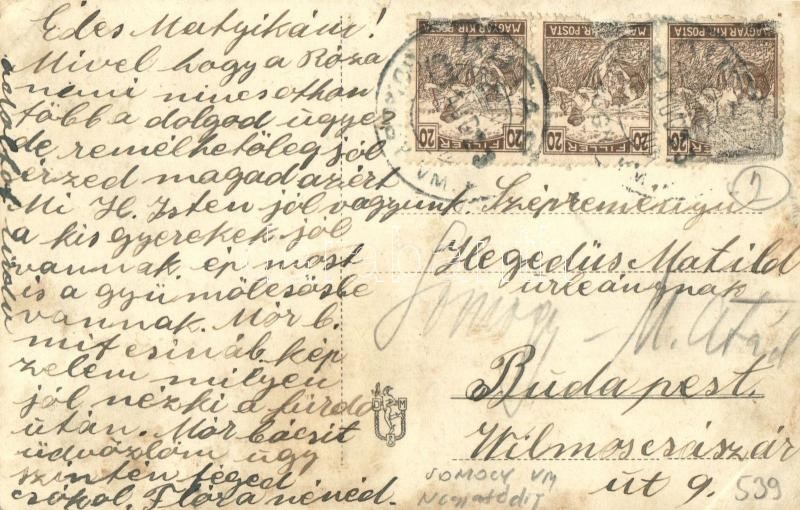 Édes Matyikám!
Mivel hogy a Róza
neni nincs othon
több a dolgod ügye
de remélhetöleg jól
érzed magad azért
Mi H. Isten jól vagyunk.
a kis gyerekek jól
vannak ép most
is a gyümölcsösbe
vannak. Mór b.
mit csinál kép
zelem milyen
jól nézki a fürdö
után. Mór bácsit
üdvözlöm úgy
szintén téged
csókol. Flóra nénéd.
MAGYAR KIR. POSTA
20 FILLÉR 20
MAGYAR KIR. POSTA
20 FILLÉR 20
MAGYAR KIR. POSTA
20 FILLÉR
2
Szépreményü
Hegedüs Matild
urleánynak
Somogy - M. Atád
Budapest.
Vilmoscsászár
út 9.
SOMOGY VM
539